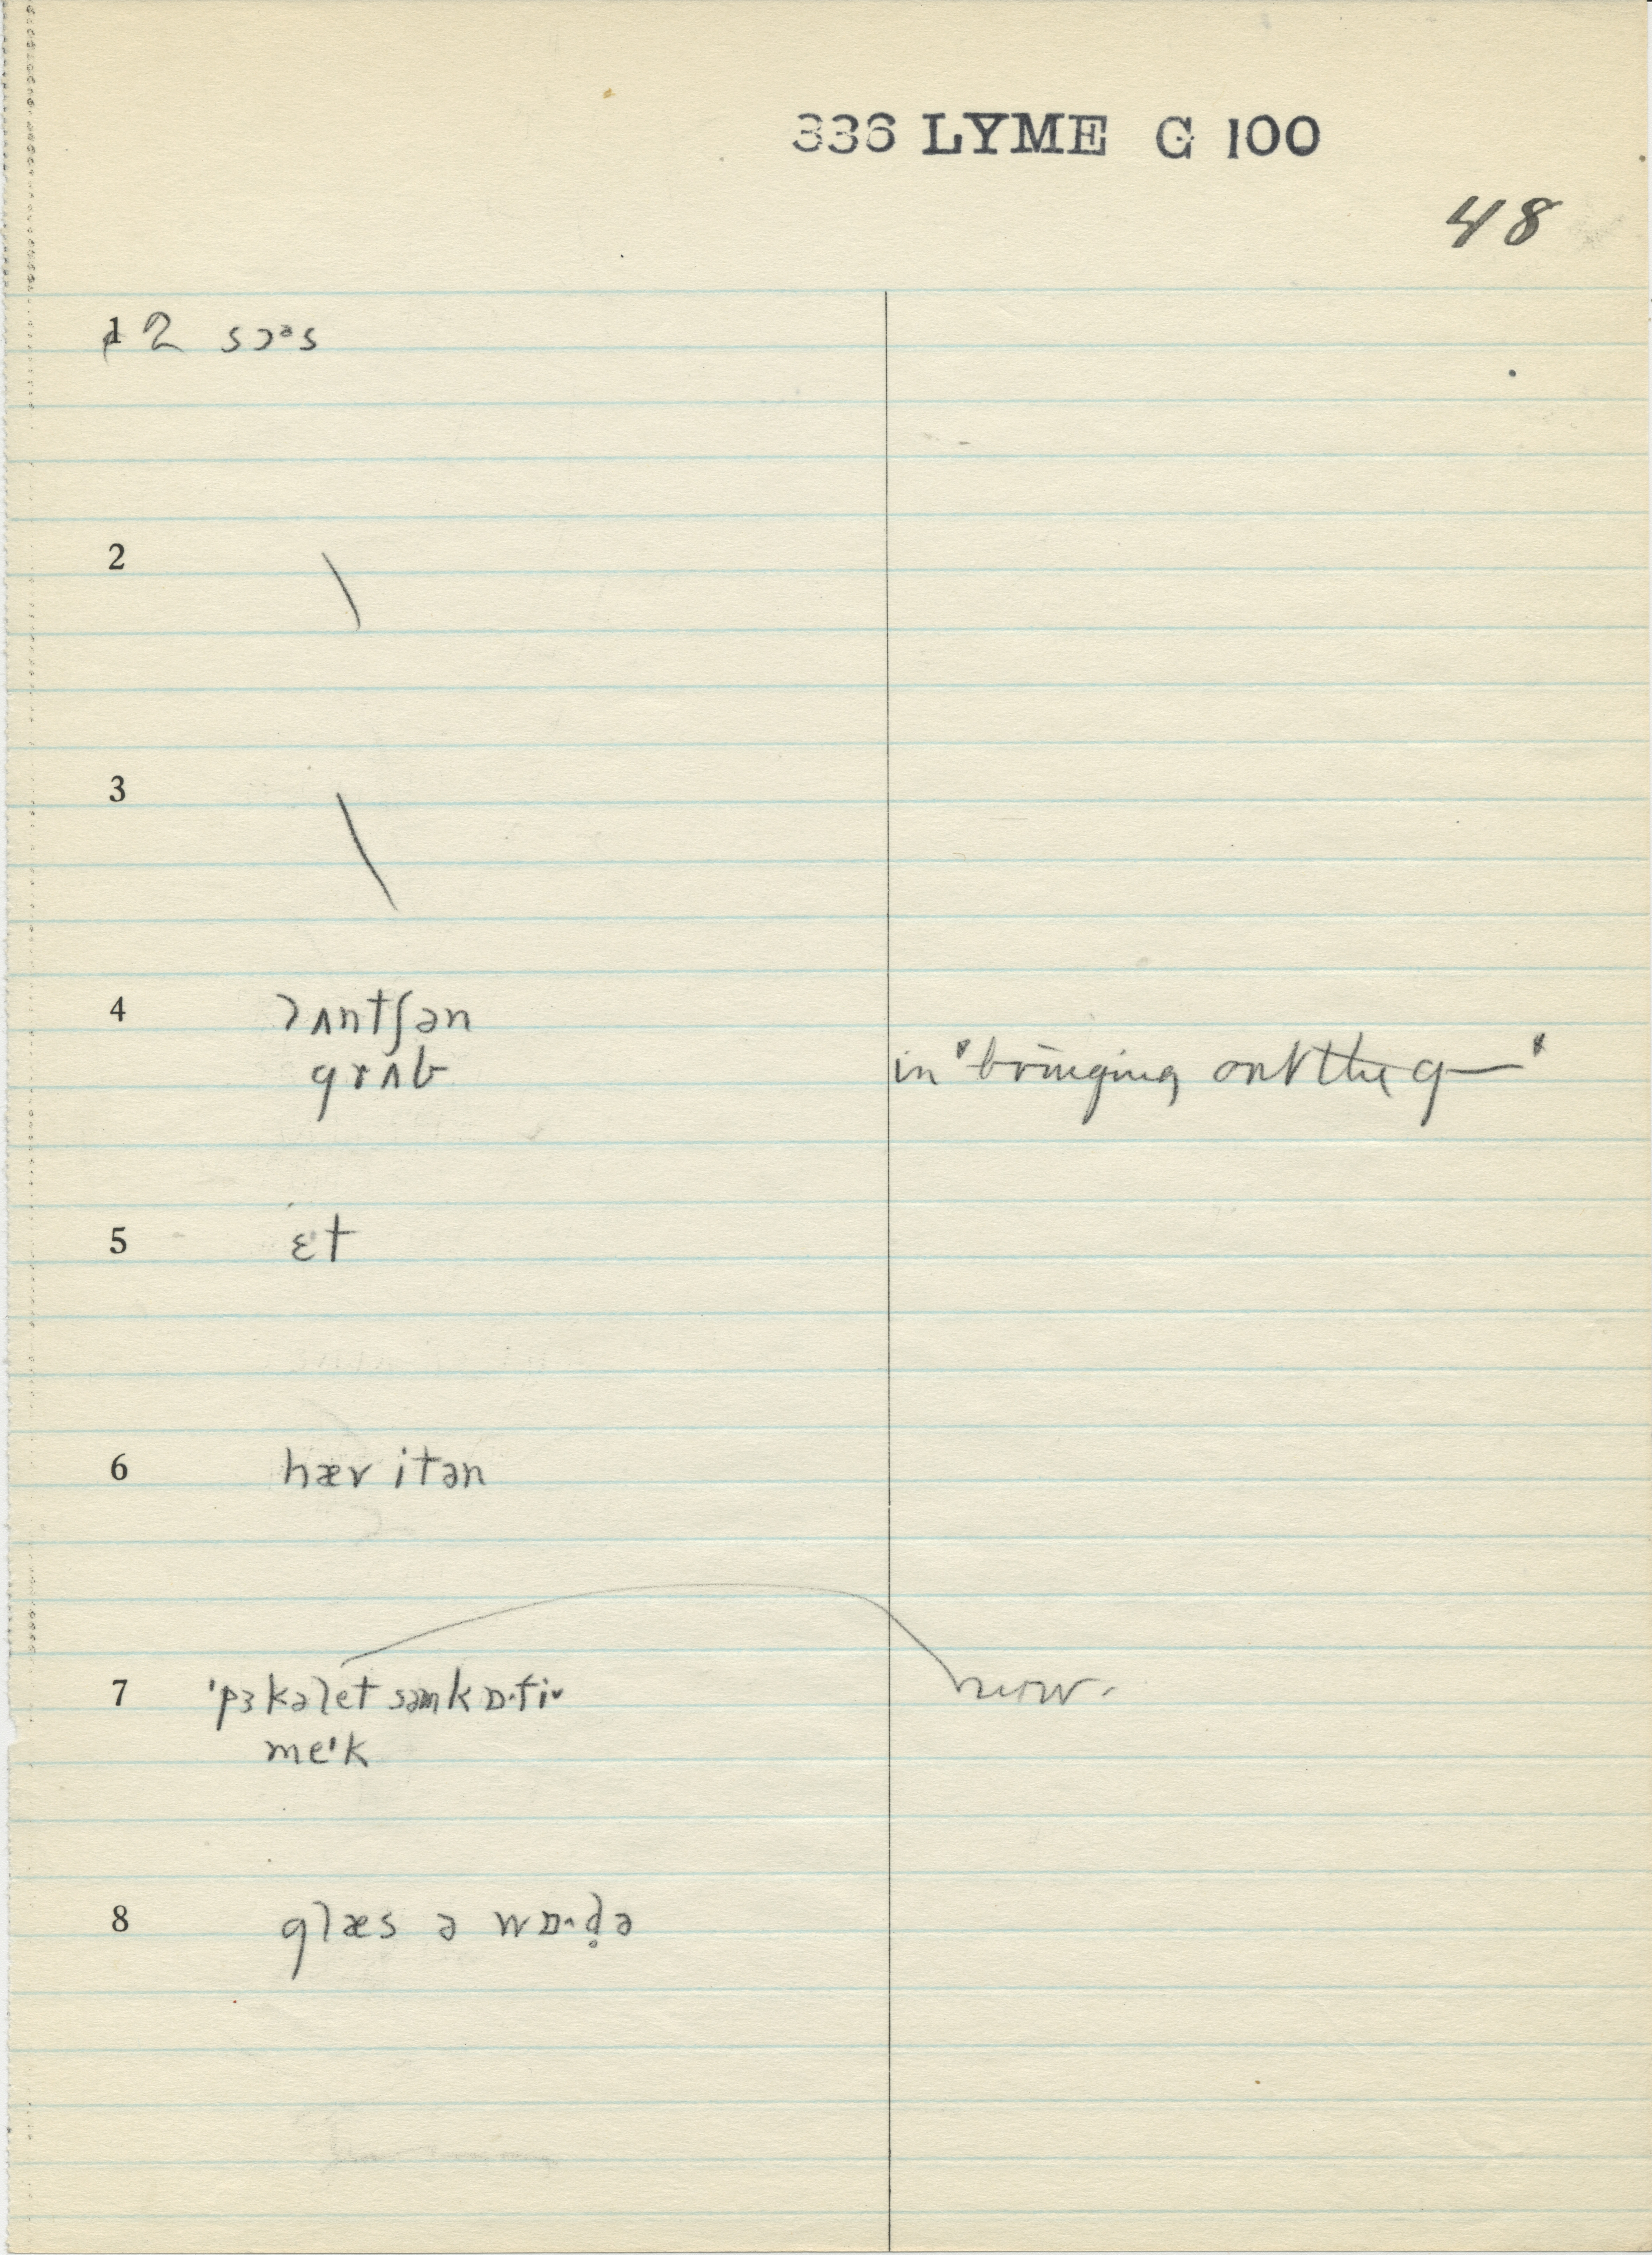 336 LYME G 100
48
1 2 sɔᵊs
2
3
4 lʌntʃən
grʌb in "bringing out the g—"
5 ɛt
6 hær itən
7 'pɜkəlet səmkɒ·fi now.
me'k
8 glæs ə wɒ·d̥ə